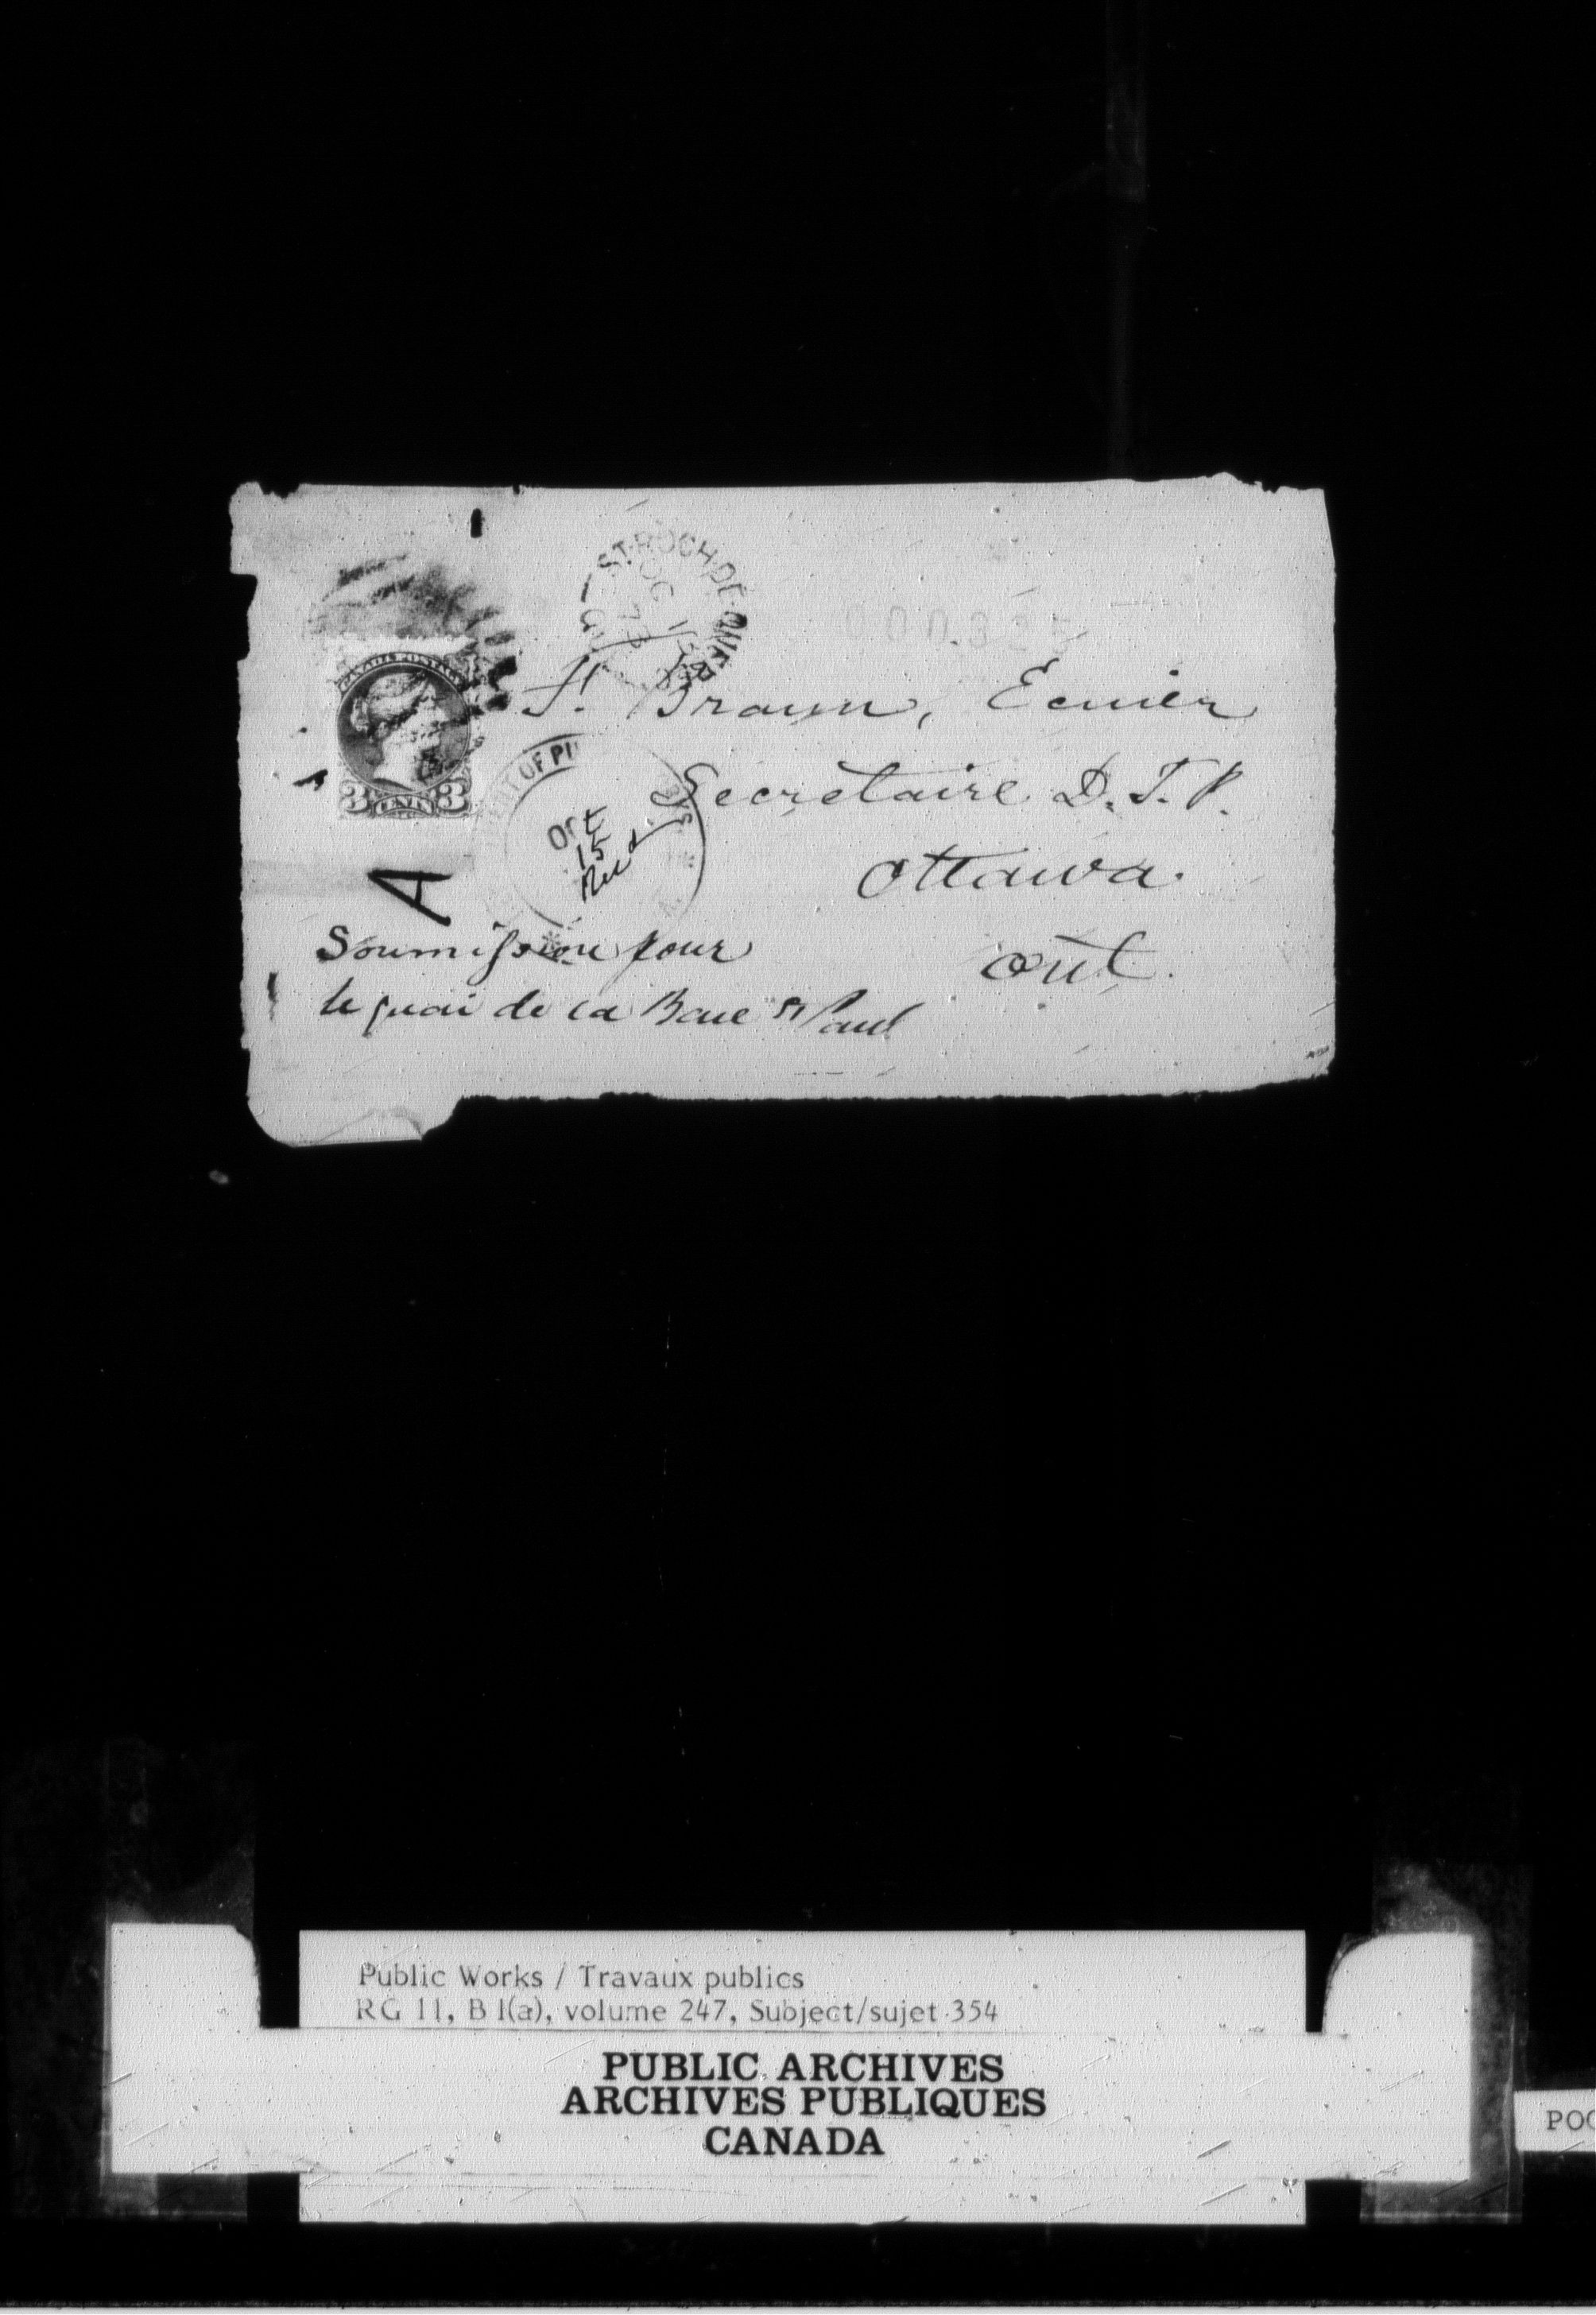 ST. ROCH-DE-QUEBEC
OC 13
77
000325
CANADA POSTAGE
3 CENTS 3
F. Braun, Ecuier
Secretaire D. T. P.
Ottawa.
Ont.
OF PU
Oct
15
Recd.
A
Soumission pour
le quai de la Baie St Paul
Public Works / Travaux publics
RG 11, B 1(a), volume 247, Subject/sujet 354
PUBLIC ARCHIVES
ARCHIVES PUBLIQUES
CANADA
POC